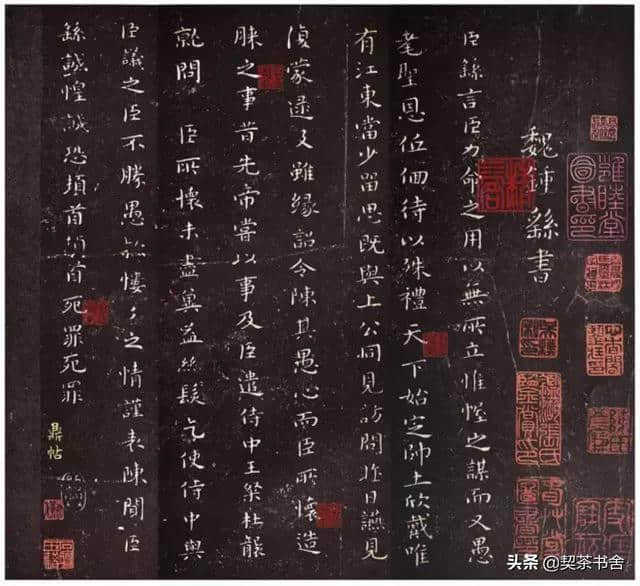 魏鍾繇書
臣繇言臣力命之用以無所立惟幄之謀而又愚
耄聖恩低佪待以殊禮 天下始定帥土欣戴唯
有江東當少留思既與上公同見訪問昨日讌見
復蒙逮及雖緣詔令陳其愚心而臣所懷造
膝之事昔先帝嘗以事及臣遣侍中王粲杜襲
就問 臣所懷未盡冀益絲髮乞使侍中與
臣議之臣不勝愚款慺々之情謹表陳聞臣
繇誠惶誠恐頓首頓首死罪死罪
鼎帖
头条 @契茶书舍